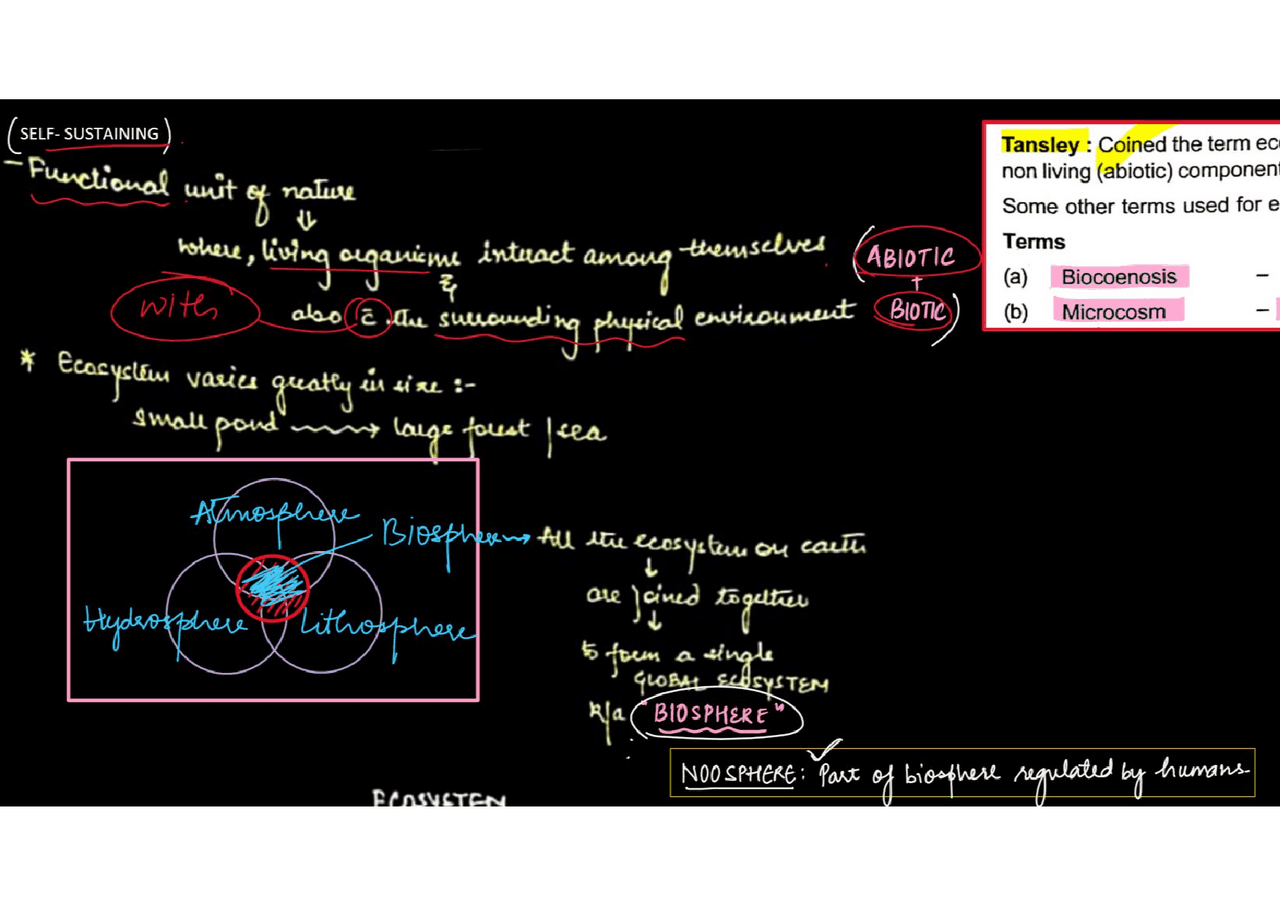 (SELF- SUSTAINING)
- Functional unit of nature
where, living organisms interact among themselves
&
also c̄ the surrounding physical environment
with
(ABIOTIC
+
BIOTIC)
Tansley : Coined the term ec
non living (abiotic) component
Some other terms used for e
Terms
(a) Biocoenosis –
(b) Microcosm –
* Ecosystem varies greatly in size :-
small pond → large forest | sea
Atmosphere
Biosphere → All the ecosystem on earth
Hydrosphere
Lithosphere
↓
are joined together
↓
to form a single
GLOBAL ECOSYSTEM
K/a "BIOSPHERE"
NOOSPHERE: Part of biosphere regulated by humans
ECOSYSTEM